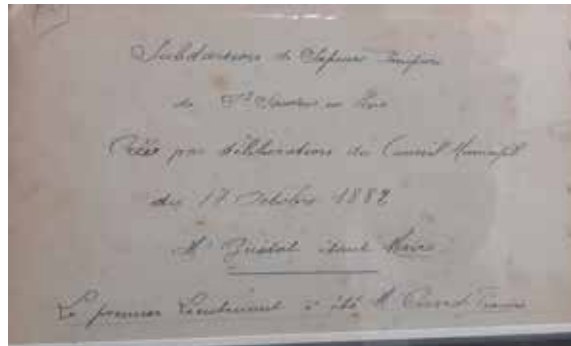 Subdivision de Sapeurs Pompiers
de St Sauveur en
Créée par délibération du Conseil Municipal
du 17 Octobre 1882
Mr étant Maire
Le premier Lieutenant a été Mr